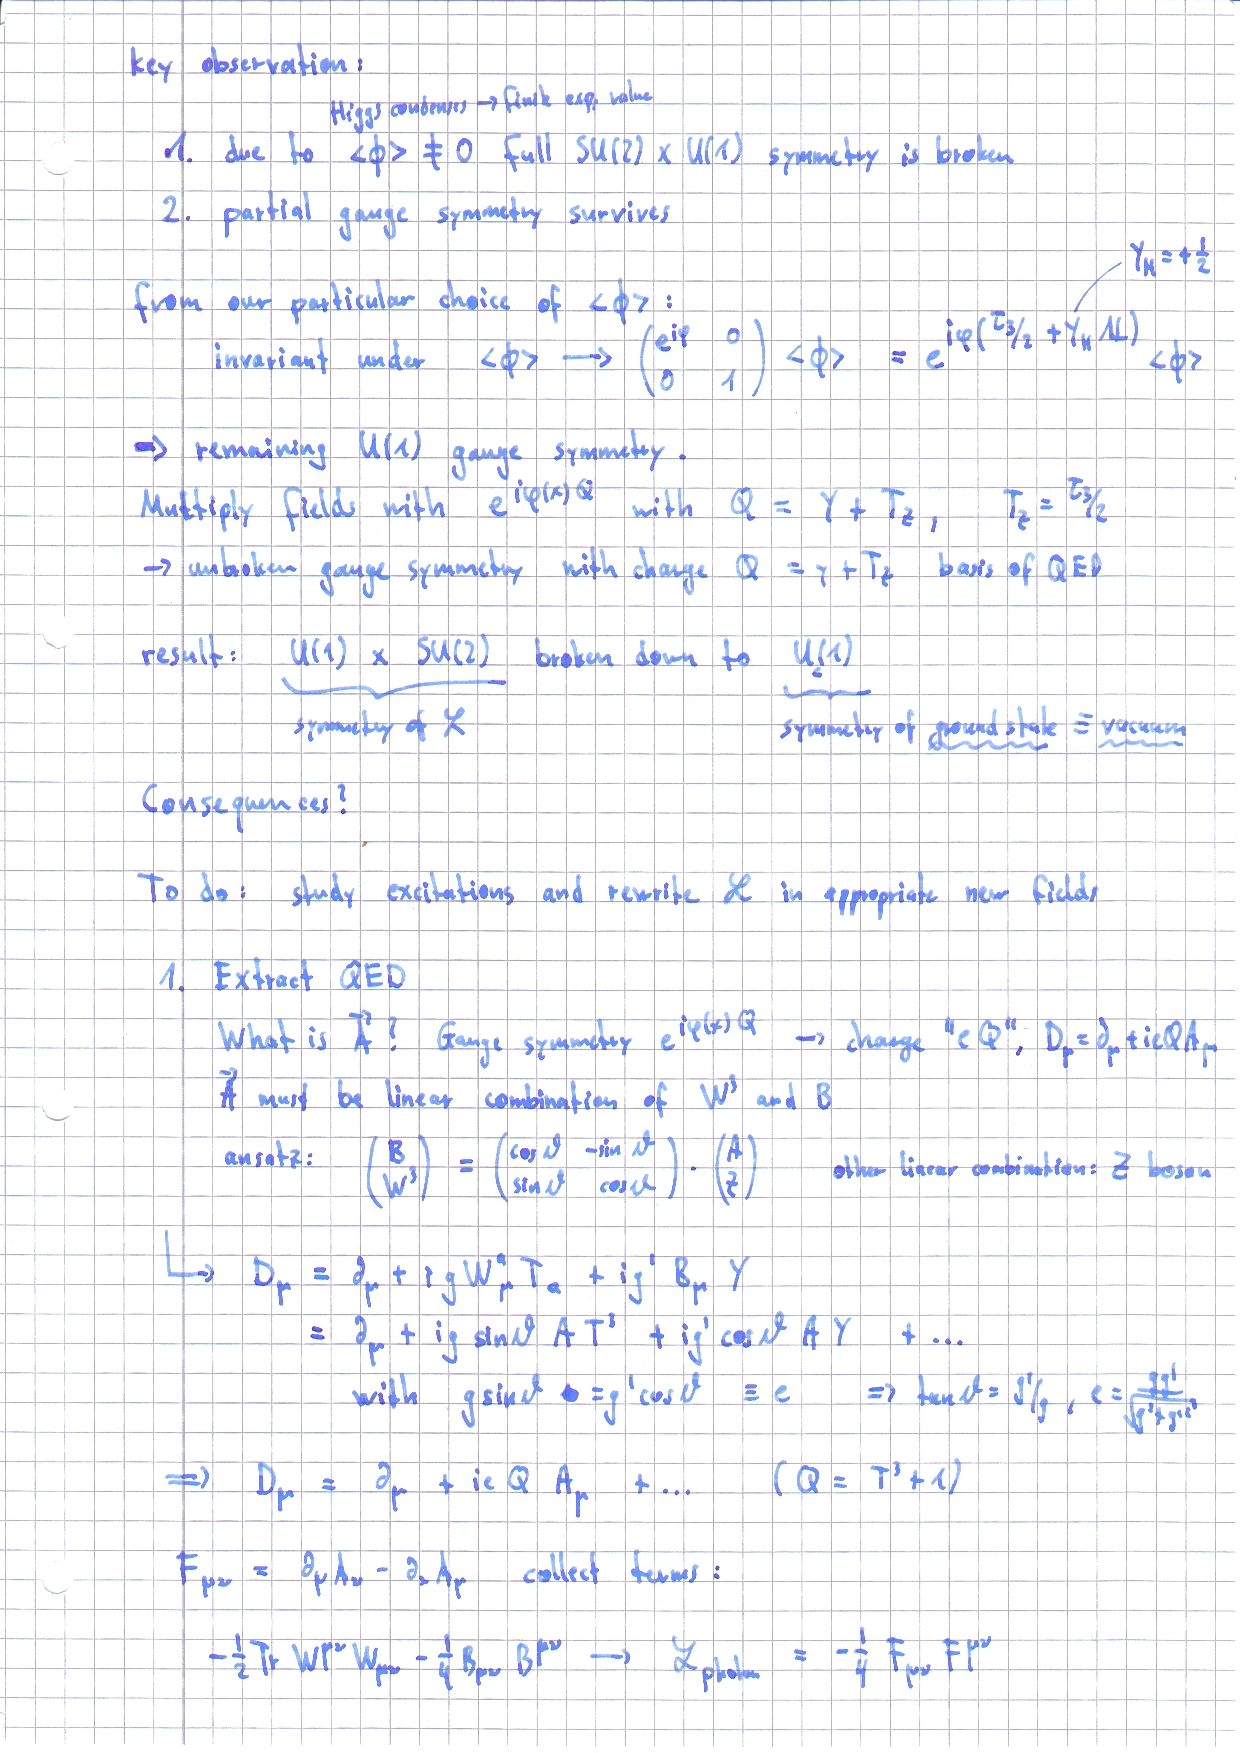 key observation:
Higgs condenses → finite exp. value
1. due to <ϕ> ≠ 0 full SU(2) x U(1) symmetry is broken
2. partial gauge symmetry survives
Y_H = +1/2
from our particular choice of <ϕ>:
invariant under <ϕ> → (e^{iφ} 0; 0 1) <ϕ> = e^{iφ(τ_3/2 + Y_H 𝟙)} <ϕ>
⇒ remaining U(1) gauge symmetry.
Multiply fields with e^{iφ(x)Q} with Q = Y + T_z, T_z = τ_3/2
→ unbroken gauge symmetry with charge Q = Y + T_z basis of QED
result: U(1) x SU(2) broken down to U(1)
symmetry of ℒ symmetry of ground state ≡ vacuum
Consequences?
To do: study excitations and rewrite ℒ in appropriate new fields
1. Extract QED
What is A⃗? Gauge symmetry e^{iφ(x)Q} → charge "eQ", D_μ = ∂_μ + ieQA_μ
A⃗ must be linear combination of W³ and B
ansatz: (B; W³) = (cosϑ -sinϑ; sinϑ cosϑ) · (A; Z) other linear combination: Z boson
↳ D_μ = ∂_μ + ig W^a_μ T_a + ig' B_μ Y
= ∂_μ + ig sinϑ A T³ + ig' cosϑ A Y + ...
with g sinϑ = g' cosϑ ≡ e ⇒ tanϑ = g'/g, e = gg'/√(g²+g'²)
⇒ D_μ = ∂_μ + ie Q A_μ + ... (Q = T³ + 1)
F_μν = ∂_μ A_ν - ∂_ν A_μ collect terms:
-1/2 Tr W^μν W_μν - 1/4 B_μν B^μν → ℒ_photon = -1/4 F_μν F^μν